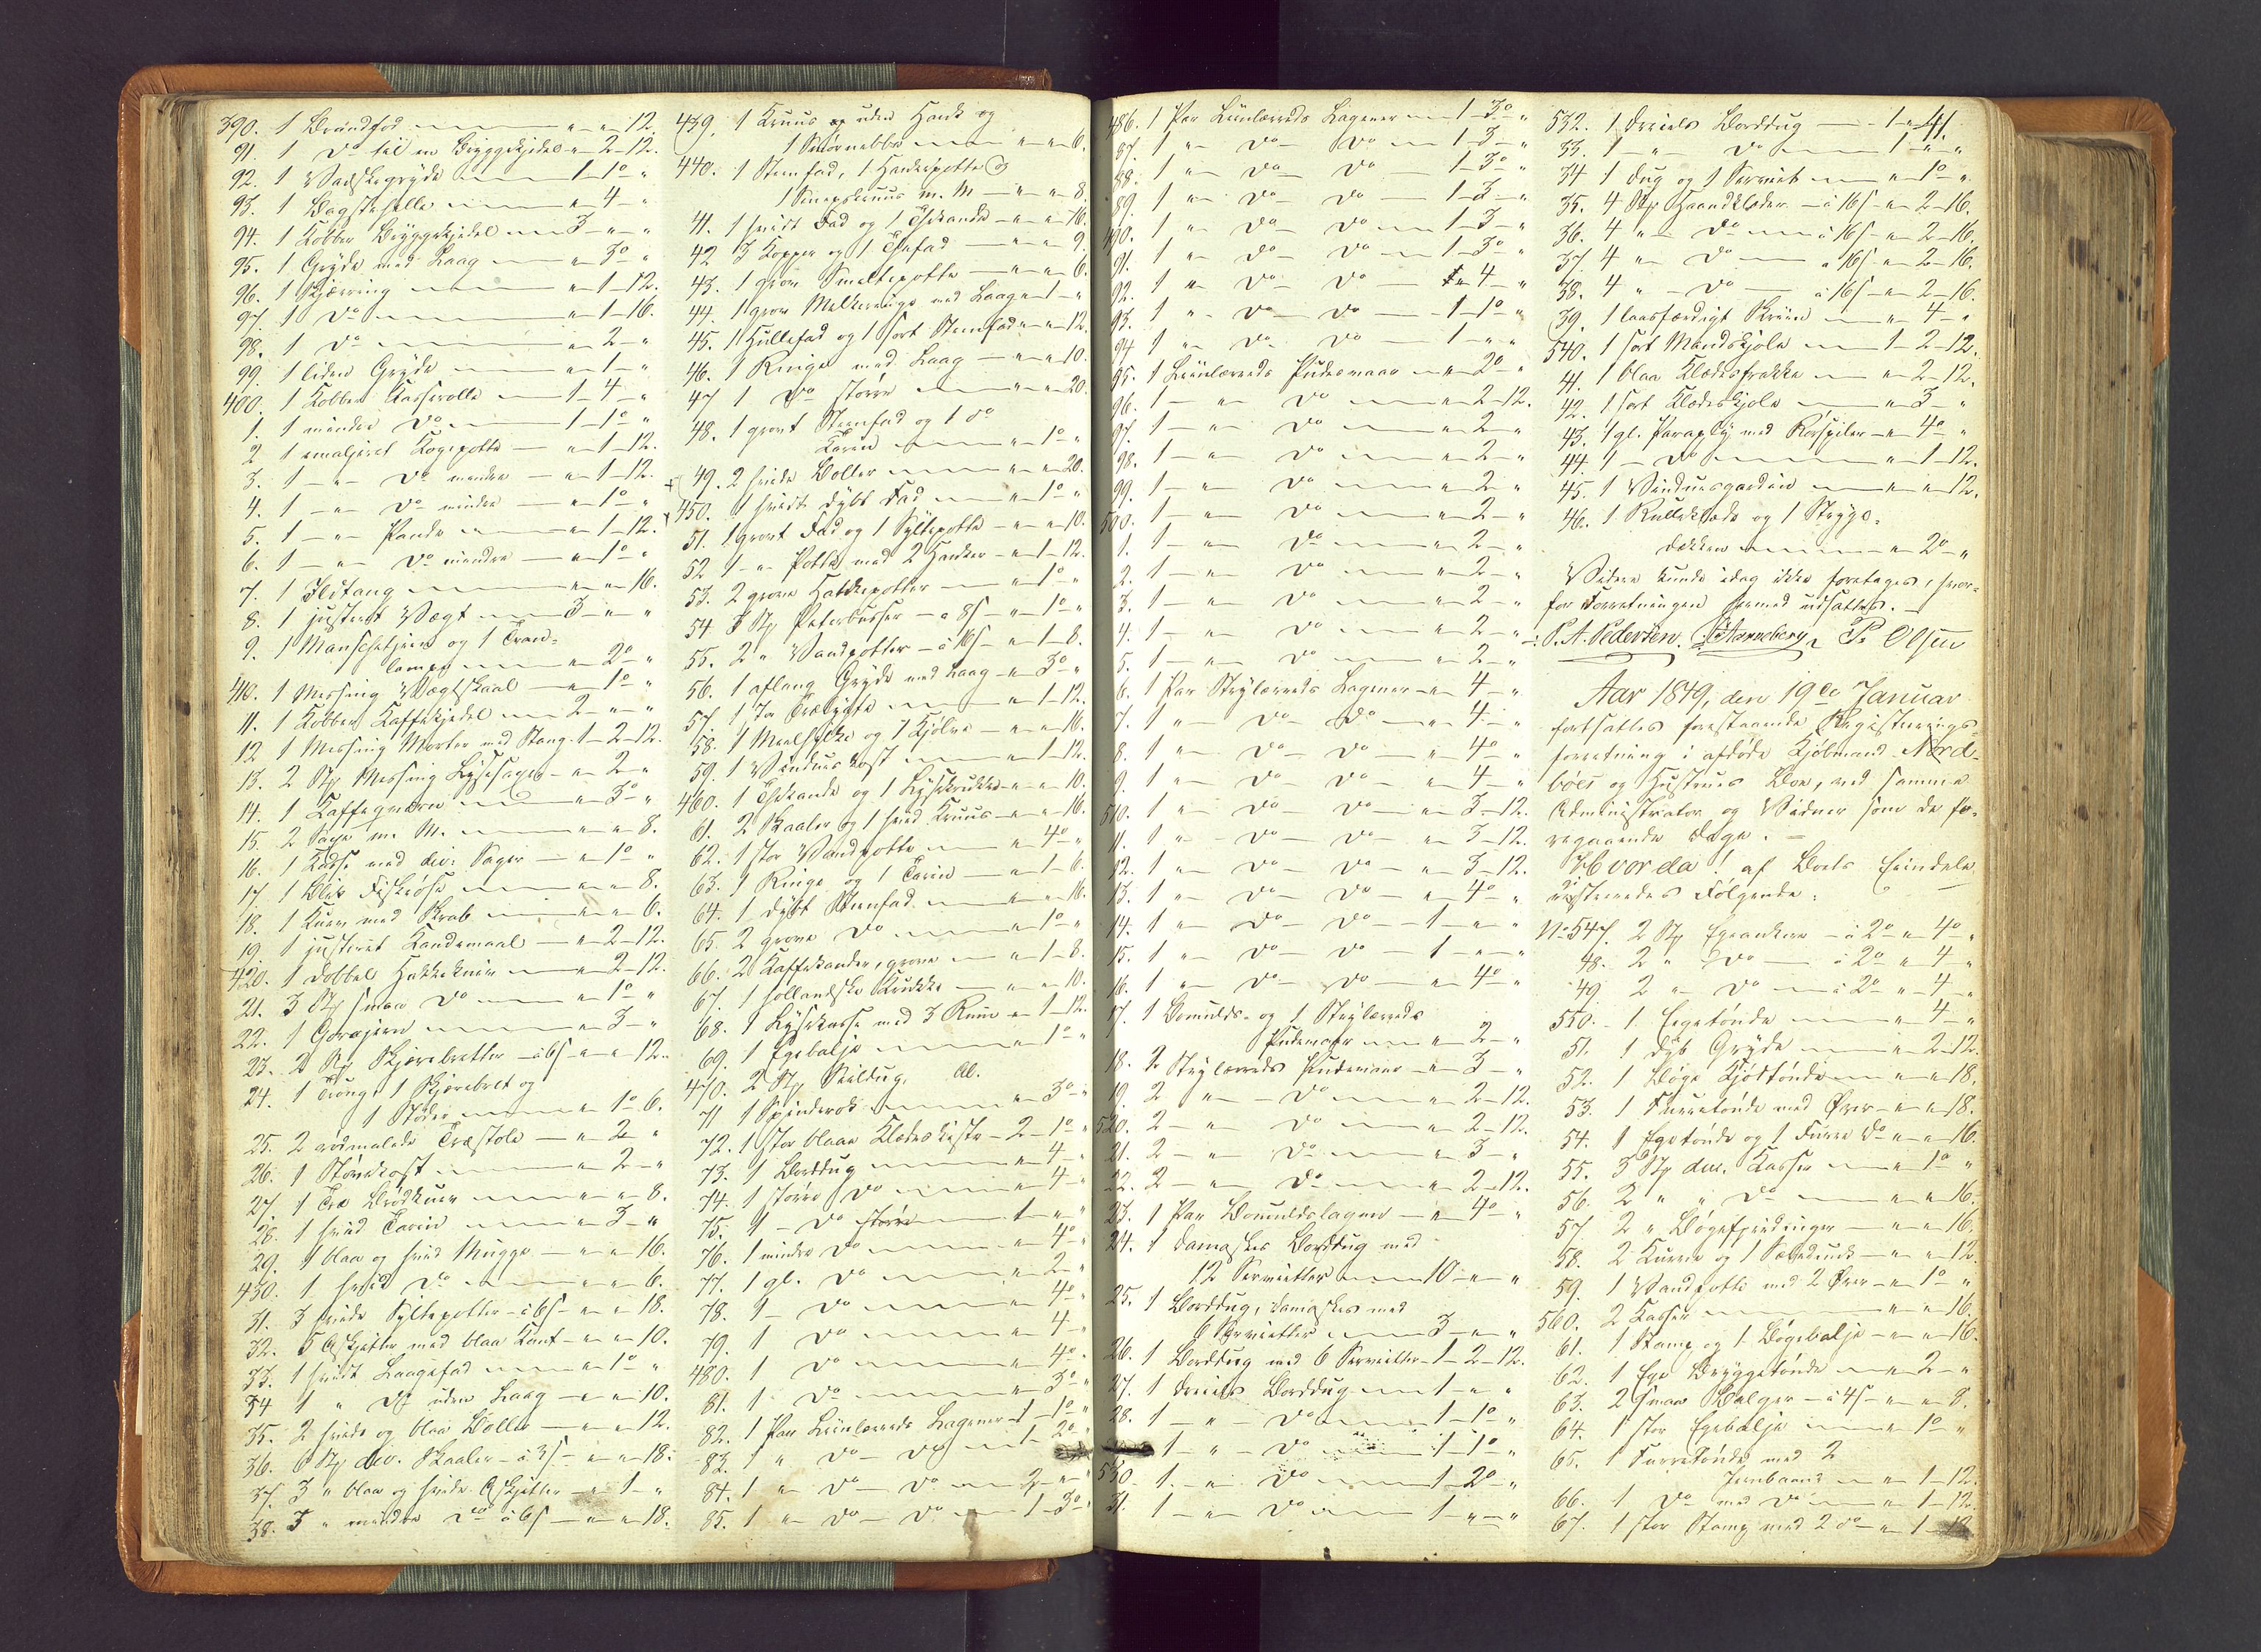 390. 1 Brandfod " " 12.
91. 1 Do til en Bryggekjedel " 2 12.
92. 1 Vadskegryde 1 1 "
93. 1 Bagstehelle " 4 "
94. 1 Kobber Bryggekjedel 3 " "
95. 1 Gryde med Laag " 3 "
96. 1 " 1 12.
97. 1 Do " 1 16.
98. 1 Do " 2 "
99. 1 liden Gryde " 1 "
400. 1 Kobber Kasserolle 1 4 "
1. 1 mindre Do 1 1 "
2 1 emaljeret Kogepotte " 1 12.
3. 1 " Do mindre " 1 12.
4. 1 " Do mindre " 1 "
5. 1 " Pande " 1 12.
6. 1 " Do mindre " 1 "
7. 1 Ildtang " " 16.
8. 1 justeret Vægt 3 " "
9. 1 og 1 Tran-
lampe " 2 "
410. 1 Messing Vægtskaal " 1 "
11. 1 Kobber Kaffekjedel 2 " "
12 1 Messing Morter med Stang 1 2 12.
13. 2 Stk Messing Lysesaxer " 2 "
14. 1 Kaffeqværn " 3 "
15. 2 m. M. " " 8.
16. 1 med div: Sager " 1 "
17. 1 Blik " " 8.
18. 1 Kurv med Skrab " " 6.
19. 1 justeret Kandemaal " 2 12.
420. 1 dobbel Hakkekniv " 2 12.
21. 3 Stk smaa Do " 1 "
22. 1 " 3 "
23. 2 Stk Skjærebretter à 6 s " " 12.
24. 1 1 Skjærebret og
1 " 1 6.
25. 2 rødmalede Træstole " 2 "
26. 1 " 2 "
27. 1 Træ Brødkurv " " 8.
28. 1 hvid Terin " 3 "
29. 1 blaa og hvid Mugge " " 16.
430. 1 hvid Do " " 6.
31. 3 hvide Syltepotter à 6 s " " 18.
32. 5 Askjetter med blaa Kant " " 10.
33. 1 hvidt Laagefad " 1 "
34 1 " Do uden Laag " " 10.
35. 2 hvide og blaa Boller " " 12.
36. 6 Stk div. Skaaler à 3 s " " 18.
37. 3 " blaa og hvide Askjetter " 1 "
38. 3 " mindre do à 6 s " " 18.
439. 1 Kruus uden Hank og
1 " " 6.
440. 1 Steenfad, 1 Hankepotte &
1 Sennepskruus m. M " " 8.
41. 1 hvidt Fad og 1 Thekande " " 16.
42 3 Kopper og 1 Thefad " " 9.
43. 1 grov Smeltepotte " " 6.
44. 1 grov Melkemugge med Laag " 1 "
45. 1 Hullefad og 1 sort Steenfad " " 12.
46. 1 Ringe med Laag " " 10.
47 1 Do større " " 20.
48. 1 grovt Steenfad og 1 do
Terin " 1 "
49. 2 hvide Boller " " 20.
450. 1 hvidt dybt Fad " 1 "
51. 1 grovt Fad og 1 Syltepotte " " 10.
52 1 " Potte med 2 Hanker " 1 12.
53. 2 grove " 1 "
54 3 Stk Peberbøsser à 8 s " 1 "
55. 2 " Vandpotter à 16 s " 1 8.
56. 1 aflang Gryde med Laag " 3 "
57. 1 " 1 12.
58. 1 og 1 " " 16.
59. 1 Vinduskost " 1 12.
460. 1 Thekande og 1 Lysekrukke " " 10.
61. 2 Skaaler og 1 hvid Kruus " " 16.
62. 1 stor Vandpotte " 4 "
63. 1 Ringe og 1 Terin " 1 6.
64. 1 dybt Steenfad " " 16.
65. 2 grove Do " 1 "
66. 2 Kaffekander, grove " 1 8.
67. 1 hollandske Krukke " " 10.
68. 1 Lysekasse med 3 Rum " 1 12.
69. 1 Egebalje " 1 "
470. 2 Stk
71 1 Spinderok " 3 "
72. 1 stor blaae Klædeskiste 2 1 "
73. 1 Borddug " 4 "
74. 1 større Do " 4 "
75. 1 Do 1 " "
76. 1 mindre Do " 4 "
77. 1 gl. Do " 2 "
78. 1 Do " 4 "
79. 1 Do " 4 "
480. 1 Do " 4 "
81. 1 Do " 3 "
82. 1 Par Liinlærreds Lagener 1 1 "
83. 1 " Do Do 1 2 "
84. 1 " Do Do 2 " "
85. 1 " Do Do 1 3 "
486. 1 Par Liinlærreds Lagener 1 3 "
87. 1 " Do Do 1 3 "
88. 1 " Do Do 1 3 "
89. 1 " Do Do 1 3 "
490. 1 " Do Do 1 3 "
91. 1 " Do Do 1 3 "
92. 1 " Do Do " 4 "
93. 1 " Do Do 1 1 "
94 1 " Do Do 1 " "
95. 1 Liinlærreds Pudevaar " 2 "
96. 1 " Do " 2 12.
97. 1 " Do " 2 "
98. 1 " Do " 2 "
99. 1 " Do " 2 "
500. 1 " Do " 2 "
1. 1 " Do " 2 "
2. 1 " Do " 2 "
3. 1 " Do " 2 "
4. 1 " Do " 2 "
5. 1 " Do " 2 "
6. 1 Par Strylærreds Lagener " 4 "
7. 1 " Do Do " 4 "
8. 1 " Do Do " 4 "
9. 1 " Do Do " 4 "
510. 1 " Do Do " 3 12.
11. 1 " Do Do " 3 12.
12. 1 " Do Do " 3 12.
13. 1 " Do Do " 4 "
14. 1 " Do Do 1 " "
15. 1 " Do Do 1 " "
16. 1 " Do Do " 4 "
17. 1 Bomulds- og 1 Strylærreds
Pudevaar " 2 "
18. 2 Strylærreds Pudevaar " 3 "
19. 2 " Do " 2 12.
520. 2 " Do " 2 12.
21. 2 " Do " 3 "
22. 2 " Do " 2 12.
23. 1 Par Bomuldslagner " 4 "
24. 1 Damaskes Borddug med
12 Servietter 10 " "
25. 1 Borddug, damaskes med
6 Servietter 3 " "
26. 1 Borddug med 6 Servietter 1 2 12.
27. 1 Dreiels Borddug 1 " "
28. 1 " Do 1 1 "
1 " Do 1 1 "
530. 1 " Do 1 2 "
31. 1 " Do 1 " "
532. 1 Dreiels Borddug 1
33. 1 " Do 1 " "
34 1 Dug og 1 Serviet " 1 "
35. 4 Stk Haandklæder à 16 s " 2 16.
36. 4 " Do à 16 s " 2 16.
37 4 " Do " 16 s " 2 16.
38. 4 " Do à 16 s " 2 16.
39. 1 laasfærdigt Skriin " 4 "
540. 1 sort Mandskjole 1 2 12.
41. 1 blaa Klædesfrakke " 2 12.
42. 1 sort Klædeskjole " 3 "
43. 1 gl. Paraply med Rørspiler " 4 "
44. 1 Do " 1 12.
45. 1 Vinduesgardin " " 12.
46. 1 Rulleklæde og 1 Stryge-
dækken " 2 "
Videre kunde idag ikke foretages, hvor-
for Forretningen hermed udsattes.
P. A. Pedersen. P. Olsen
Aar 1849, den 19de Januar
fortsattes forestaaende Registrerings-
forretning i afdøde Kjøbmand Nord-
böes og Hustrues Boe, ved samme
Administrator og Vidner som de fo-
regaaende Dage.
Hvorda! af Boets Eiendele
registreredes Følgende:
No 547. 2 Stk Egeankere à 2 " 4 "
48. 2 " Do à 2 " 4 "
49 2 " Do à 2 " 4 "
550. 1 Egetønde " 4 "
51. 1 dyb Gryde " 2 12.
52. 1 Bøge Kjødtønde " " 18.
53. 1 Furretønde med Ører " " 18.
54. 1 Egetønde og 1 Furre Do " " 16.
55. 3 Stk div. Kasser " 1 "
56. 2 " " Do " " 16.
57. 2 " Bøgefjerdinger " " 16.
58. 2 Kurve og 1 " " 12.
59. 1 Vandbøtte med 2 Ører " 1 "
560. 2 Kasser " " 16.
61. 1 Stamp og 1 Bøgebalje " " 16.
62. 1 Ege Bryggetønde " 2 "
63. 2 smaa Balger à 4 s " " 8.
64. 1 stor Egebalje " 1 "
65. 1 Furretønde med 2
Jernbaand " 1 12.
66. 1 Do med Do " 1 12.
67. 1 stor Stamp med 2 do " 1 12